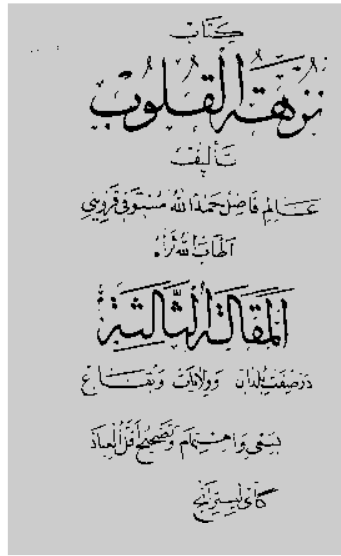 كتاب
نزهة القلوب
تأليف
عالم فاضل حمد الله مستوفی قزوینی
اطاب الله ثراه
المقالة الثالثة
در صفت بلدان و ولایات و بقاع
بسعی و اهتمام و تصحیح اقل العباد
گای لیسترانج